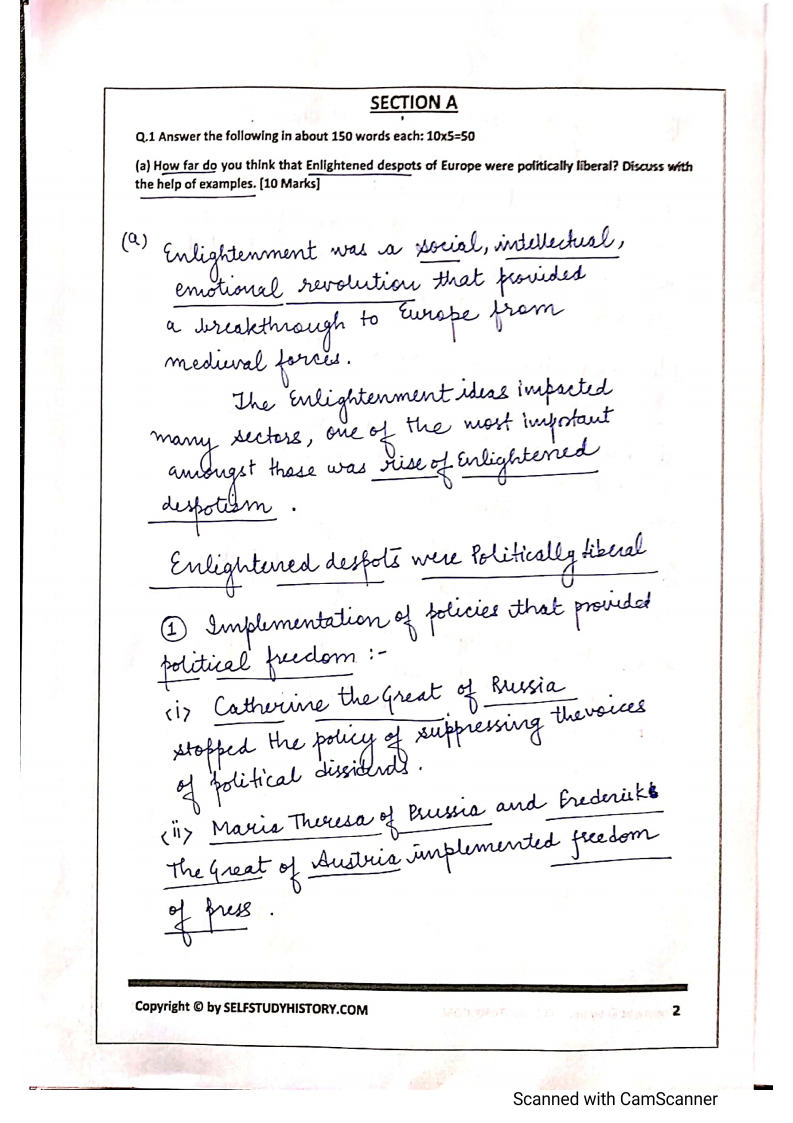 SECTION A
Q.1 Answer the following in about 150 words each: 10x5=50
(a) How far do you think that Enlightened despots of Europe were politically liberal? Discuss with
the help of examples. [10 Marks]
(a) Enlightenment was a social, intellectual,
emotional revolution that provided
a breakthrough to Europe from
medieval forces.
The Enlightenment ideas impacted
many sectors, one of the most important
amongst those was rise of Enlightened
despotism.
Enlightened despots were Politically liberal
① Implementation of policies that provided
political freedom :-
<i> Catherine the Great of Russia
stopped the policy of suppressing the voices
of political
<ii> Maria Theresa of Prussia and Frederick
The Great of Austria implemented freedom
of press.
Copyright © by SELFSTUDYHISTORY.COM
2
Scanned with CamScanner